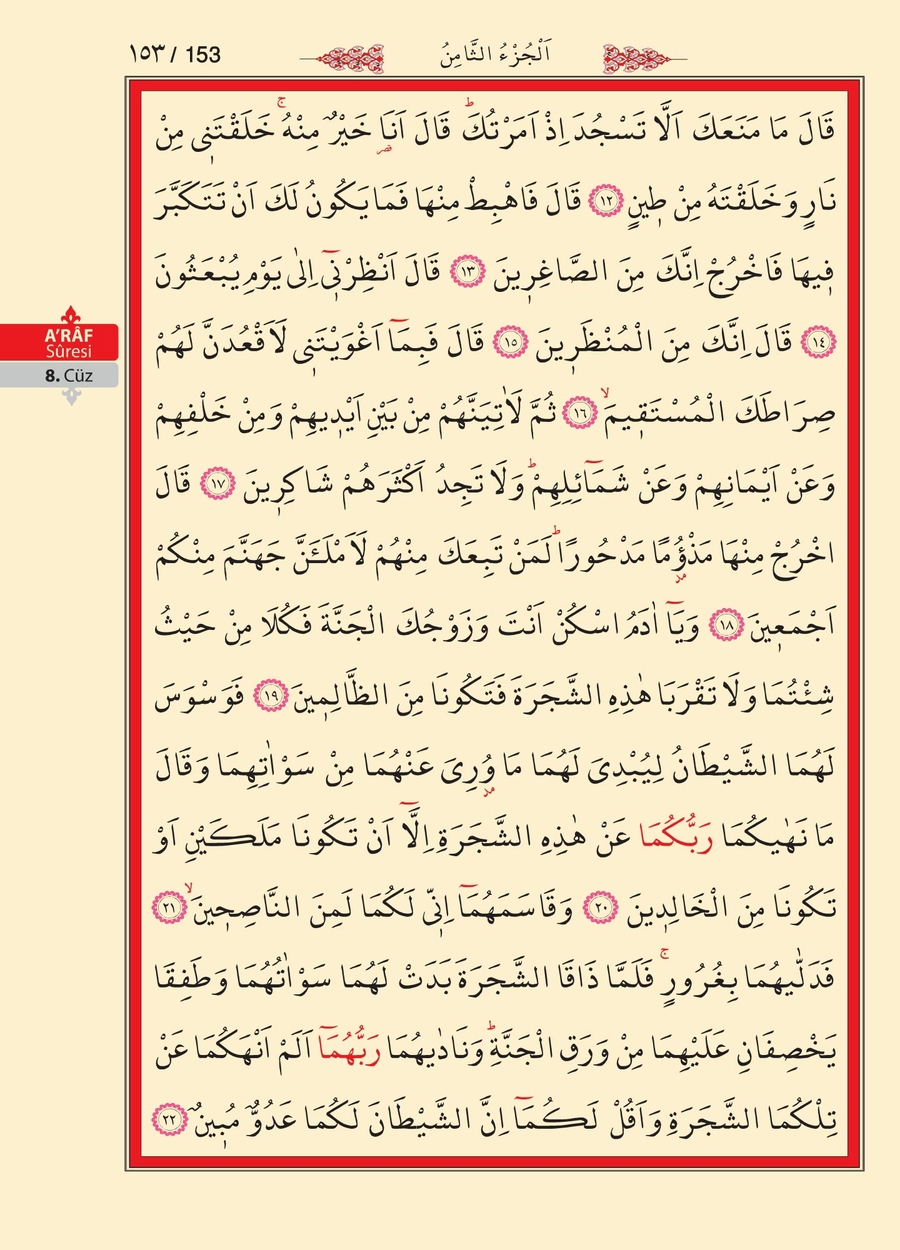 ١٥٣ / 153
اَلْجُزْءُ الثَّامِنُ
A'RÂF
Sûresi
8. Cüz
قَالَ مَا مَنَعَكَ اَلَّا تَسْجُدَ اِذْ اَمَرْتُكَۜ قَالَ اَنَا۬ خَيْرٌ مِنْهُۚ خَلَقْتَن۪ى مِنْ
نَارٍ وَخَلَقْتَهُ مِنْ ط۪ينٍ ﴿١٢﴾ قَالَ فَاهْبِطْ مِنْهَا فَمَا يَكُونُ لَكَ اَنْ تَتَكَبَّرَ
ف۪يهَا فَاخْرُجْ اِنَّكَ مِنَ الصَّاغِر۪ينَ ﴿١٣﴾ قَالَ اَنْظِرْن۪ٓى اِلٰى يَوْمِ يُبْعَثُونَ
﴿١٤﴾ قَالَ اِنَّكَ مِنَ الْمُنْظَر۪ينَ ﴿١٥﴾ قَالَ فَبِمَٓا اَغْوَيْتَن۪ى لَاَقْعُدَنَّ لَهُمْ
صِرَاطَكَ الْمُسْتَق۪يمَۙ ﴿١٦﴾ ثُمَّ لَاٰتِيَنَّهُمْ مِنْ بَيْنِ اَيْد۪يهِمْ وَمِنْ خَلْفِهِمْ
وَعَنْ اَيْمَانِهِمْ وَعَنْ شَمَٓائِلِهِمْۜ وَلَا تَجِدُ اَكْثَرَهُمْ شَاكِر۪ينَ ﴿١٧﴾ قَالَ
اخْرُجْ مِنْهَا مَذْؤُ۫مًا مَدْحُورًاۜ لَمَنْ تَبِعَكَ مِنْهُمْ لَاَمْلَـَٔنَّ جَهَنَّمَ مِنْكُمْ
اَجْمَع۪ينَ ﴿١٨﴾ وَيَٓا اٰدَمُ اسْكُنْ اَنْتَ وَزَوْجُكَ الْجَنَّةَ فَكُلَا مِنْ حَيْثُ
شِئْتُمَا وَلَا تَقْرَبَا هٰذِهِ الشَّجَرَةَ فَتَكُونَا مِنَ الظَّالِم۪ينَ ﴿١٩﴾ فَوَسْوَسَ
لَهُمَا الشَّيْطَانُ لِيُبْدِىَ لَهُمَا مَا وُ۫رِىَ عَنْهُمَا مِنْ سَوْاٰتِهِمَا وَقَالَ
مَا نَهٰيكُمَا رَبُّكُمَا عَنْ هٰذِهِ الشَّجَرَةِ اِلَّٓا اَنْ تَكُونَا مَلَكَيْنِ اَوْ
تَكُونَا مِنَ الْخَالِد۪ينَ ﴿٢٠﴾ وَقَاسَمَهُمَٓا اِنّ۪ى لَكُمَا لَمِنَ النَّاصِح۪ينَۙ ﴿٢١﴾
فَدَلّٰيهُمَا بِغُرُورٍۚ فَلَمَّا ذَاقَا الشَّجَرَةَ بَدَتْ لَهُمَا سَوْاٰتُهُمَا وَطَفِقَا
يَخْصِفَانِ عَلَيْهِمَا مِنْ وَرَقِ الْجَنَّةِۜ وَنَادٰيهُمَا رَبُّهُمَٓا اَلَمْ اَنْهَكُمَا عَنْ
تِلْكُمَا الشَّجَرَةِ وَاَقُلْ لَكُمَٓا اِنَّ الشَّيْطَانَ لَكُمَا عَدُوٌّ مُب۪ينٌ ﴿٢٢﴾